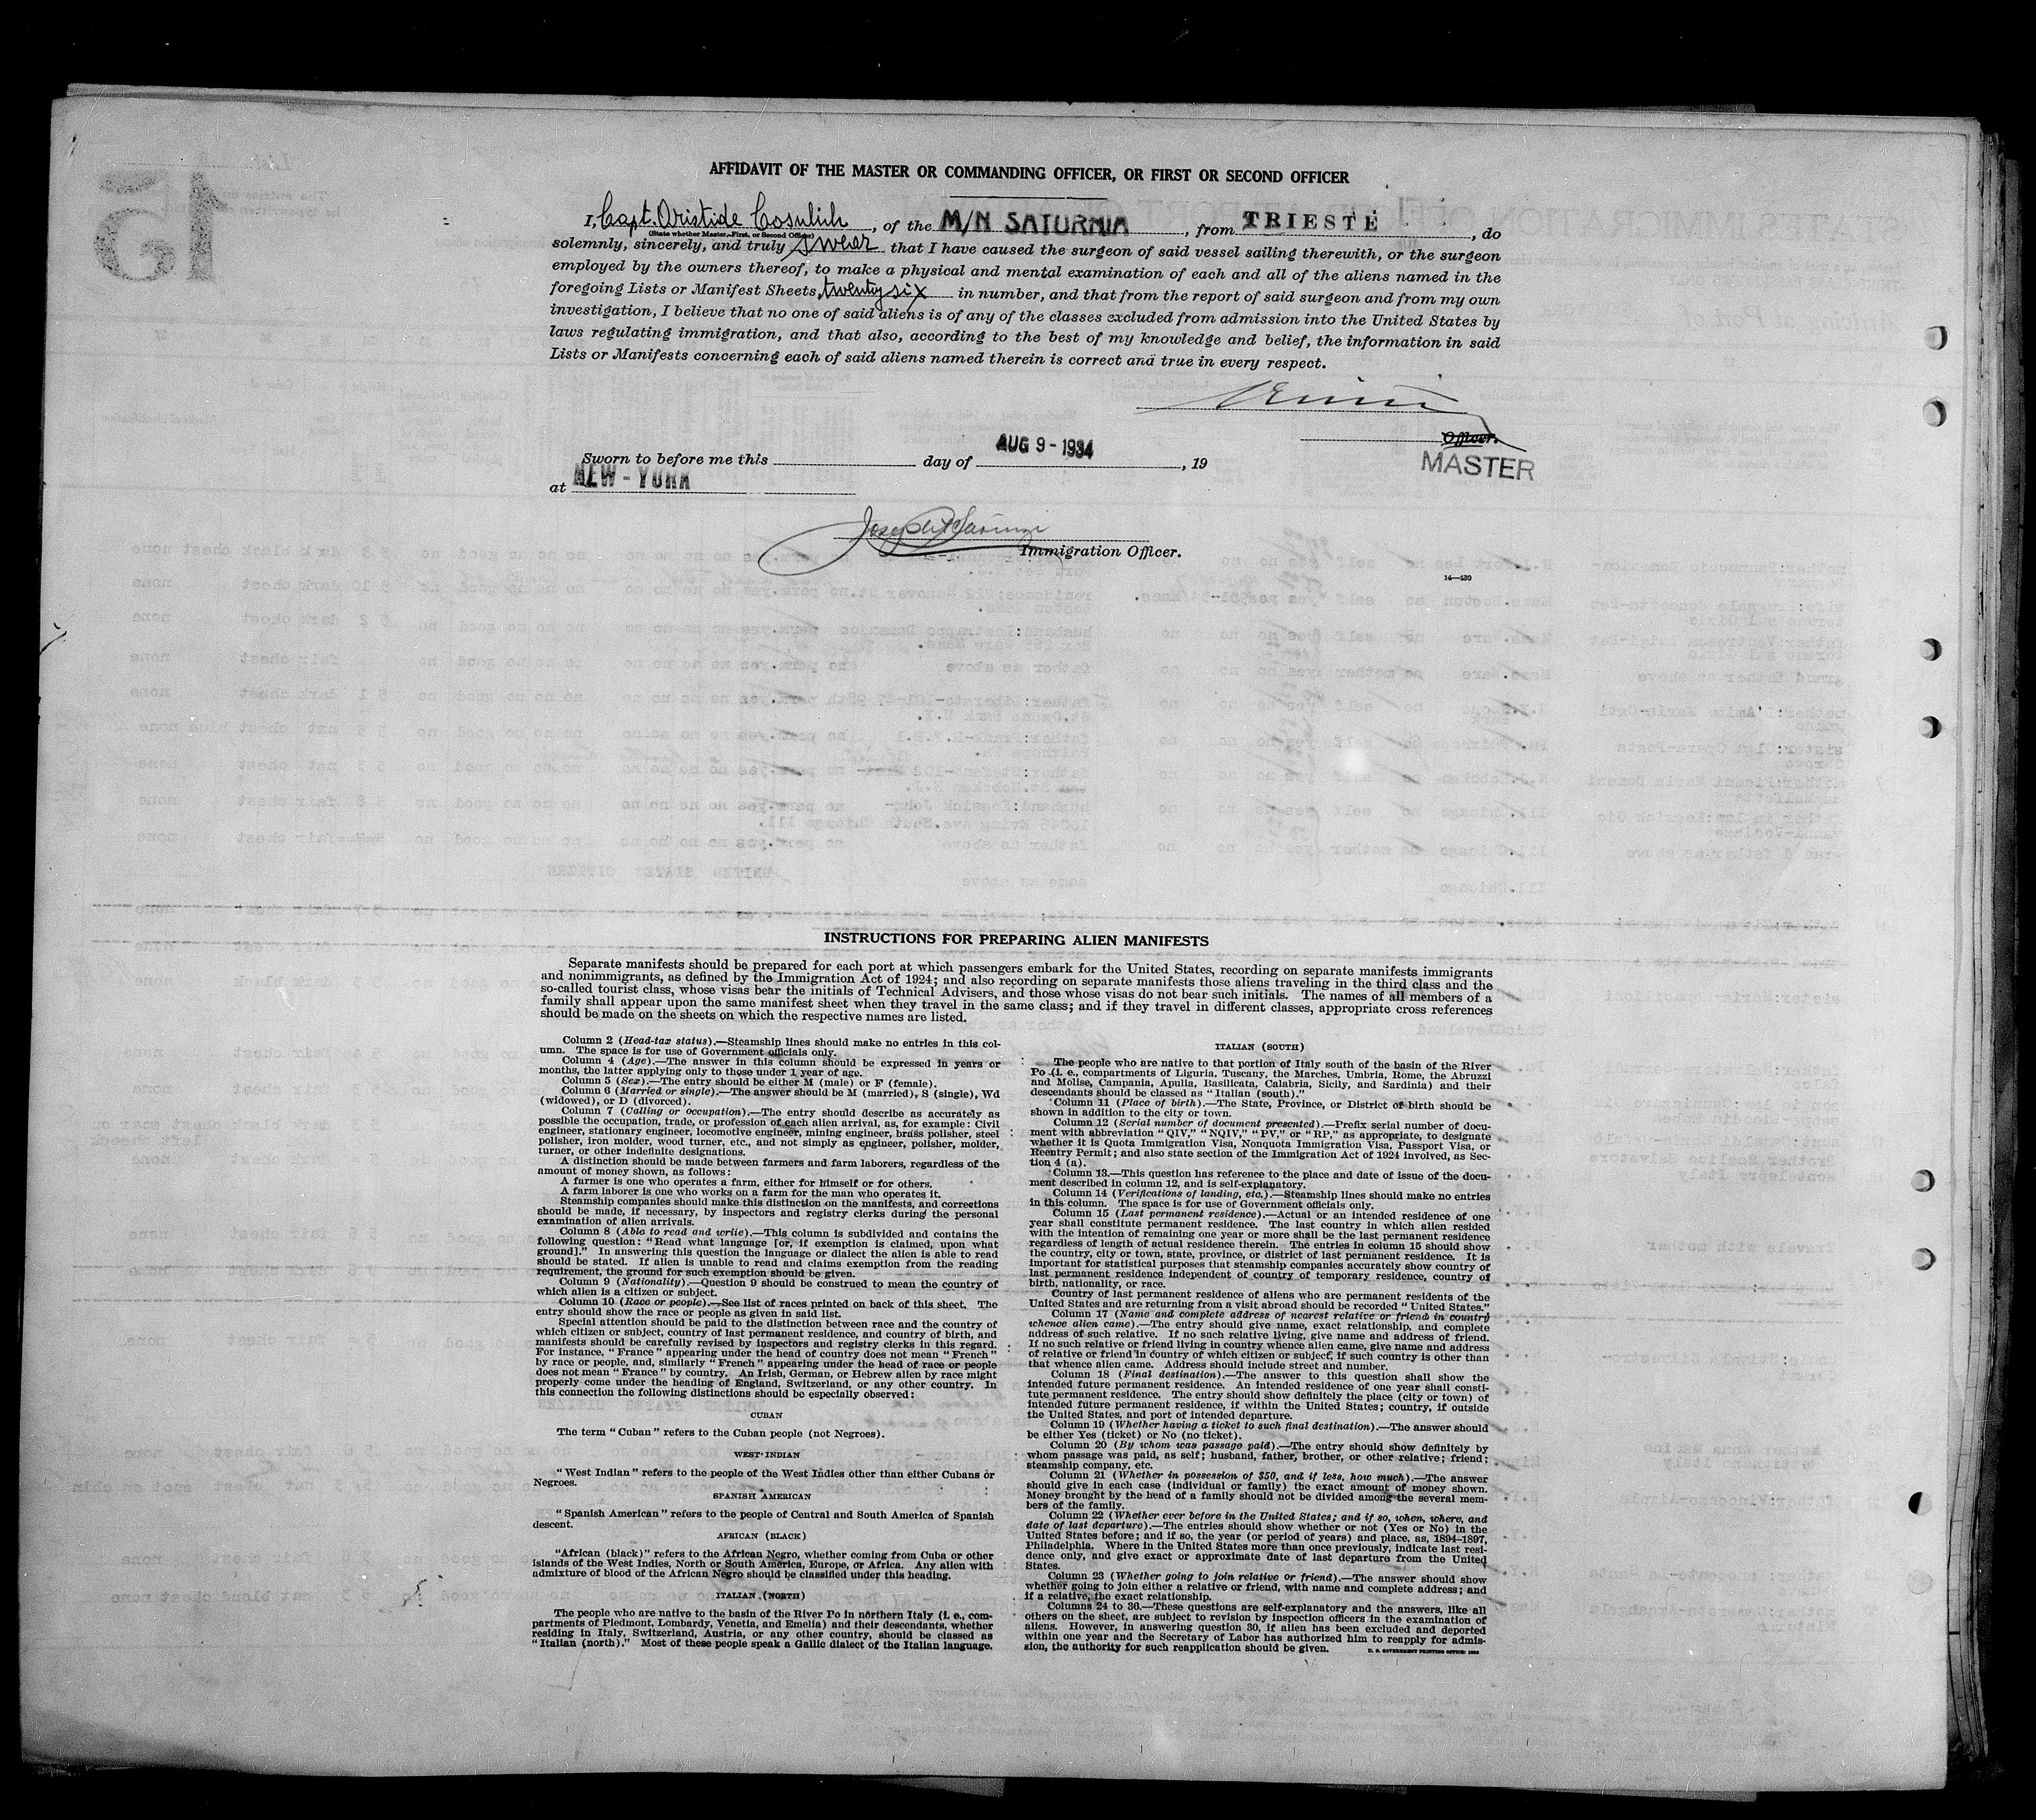 AFFIDAVIT OF THE MASTER OR COMMANDING OFFICER, OR FIRST OR SECOND OFFICER
I, Capt. Aristide Cosulich, of the M/N SATURNIA, from TRIESTE, do
(State whether Master, First, or Second Officer)
solemnly, sincerely, and truly swear that I have caused the surgeon of said vessel sailing therewith, or the surgeon
employed by the owners thereof, to make a physical and mental examination of each and all of the aliens named in the
foregoing Lists or Manifest Sheets, twenty six in number, and that from the report of said surgeon and from my own
investigation, I believe that no one of said aliens is of any of the classes excluded from admission into the United States by
laws regulating immigration, and that also, according to the best of my knowledge and belief, the information in said
Lists or Manifests concerning each of said aliens named therein is correct and true in every respect.
Officer.
MASTER
Sworn to before me this day of AUG 9 - 1934, 19
at NEW-YORK
Immigration Officer.
14—430
INSTRUCTIONS FOR PREPARING ALIEN MANIFESTS
Separate manifests should be prepared for each port at which passengers embark for the United States, recording on separate manifests immigrants
and nonimmigrants, as defined by the Immigration Act of 1924; and also recording on separate manifests those aliens traveling in the third class and the
so-called tourist class, whose visas bear the initials of Technical Advisers, and those whose visas do not bear such initials. The names of all members of a
family shall appear upon the same manifest sheet when they travel in the same class; and if they travel in different classes, appropriate cross references
should be made on the sheets on which the respective names are listed.
Column 2 (Head-tax status).—Steamship lines should make no entries in this col-
umn. The space is for use of Government officials only.
Column 4 (Age).—The answer in this column should be expressed in years or
months, the latter applying only to those under 1 year of age.
Column 5 (Sex).—The entry should be either M (male) or F (female).
Column 6 (Married or single).—The answer should be M (married), S (single), Wd
(widowed), or D (divorced).
Column 7 (Calling or occupation).—The entry should describe as accurately as
possible the occupation, trade, or profession of each alien arrival, as, for example: Civil
engineer, stationary engineer, locomotive engineer, mining engineer, brass polisher, steel
polisher, iron molder, wood turner, etc., and not simply as engineer, polisher, molder,
turner, or other indefinite designations.
A distinction should be made between farmers and farm laborers, regardless of the
amount of money shown, as follows:
A farmer is one who operates a farm, either for himself or for others.
A farm laborer is one who works on a farm for the man who operates it.
Steamship companies should make this distinction on the manifests, and corrections
should be made, if necessary, by inspectors and registry clerks during the personal
examination of alien arrivals.
Column 8 (Able to read and write).—This column is subdivided and contains the
following question: "Read what language [or, if exemption is claimed, upon what
ground]." In answering this question the language or dialect the alien is able to read
should be stated. If alien is unable to read and claims exemption from the reading
requirement, the ground for such exemption should be given.
Column 9 (Nationality).—Question 9 should be construed to mean the country of
which alien is a citizen or subject.
Column 10 (Race or people).—See list of races printed on back of this sheet. The
entry should show the race or people as given in said list.
Special attention should be paid to the distinction between race and the country of
which citizen or subject, country of last permanent residence, and country of birth, and
manifests should be carefully revised by inspectors and registry clerks in this regard.
For instance, "France" appearing under the head of country does not mean "French"
by race or people, and, similarly "French" appearing under the head of race or people
does not mean "France" by country. An Irish, German, or Hebrew alien by race might
properly come under the heading of England, Switzerland, or any other country. In
this connection the following distinctions should be especially observed:
CUBAN
The term "Cuban" refers to the Cuban people (not Negroes).
WEST INDIAN
"West Indian" refers to the people of the West Indies other than either Cubans or
Negroes.
SPANISH AMERICAN
"Spanish American" refers to the people of Central and South America of Spanish
descent.
AFRICAN (BLACK)
"African (black)" refers to the African Negro, whether coming from Cuba or other
islands of the West Indies, North or South America, Europe, or Africa. Any alien with
admixture of blood of the African Negro should be classified under this heading.
ITALIAN (NORTH)
The people who are native to the basin of the River Po in northern Italy (i. e., com-
partments of Piedmont, Lombardy, Venetia, and Emelia) and their descendants, whether
residing in Italy, Switzerland, Austria, or any other country, should be classed as
"Italian (north)." Most of these people speak a Gallic dialect of the Italian language.
ITALIAN (SOUTH)
The people who are native to that portion of Italy south of the basin of the River
Po (i. e., compartments of Liguria, Tuscany, the Marches, Umbria, Rome, the Abruzzi
and Molise, Campania, Apulia, Basilicata, Calabria, Sicily, and Sardinia) and their
descendants should be classed as "Italian (south)."
Column 11 (Place of birth).—The State, Province, or District of birth should be
shown in addition to the city or town.
Column 12 (Serial number of document presented).—Prefix serial number of docu-
ment with abbreviation "QIV," "NQIV," "PV," or "RP," as appropriate, to designate
whether it is Quota Immigration Visa, Nonquota Immigration Visa, Passport Visa, or
Reentry Permit; and also state section of the Immigration Act of 1924 involved, as Sec-
tion 4 (a).
Column 13.—This question has reference to the place and date of issue of the docu-
ment described in column 12, and is self-explanatory.
Column 14 (Verifications of landing, etc.).—Steamship lines should make no entries
in this column. The space is for use of Government officials only.
Column 15 (Last permanent residence).—Actual or an intended residence of one
year shall constitute permanent residence. The last country in which alien resided
with the intention of remaining one year or more shall be the last permanent residence
regardless of length of actual residence therein. The entries in column 15 should show
the country, city or town, state, province, or district of last permanent residence. It is
important for statistical purposes that steamship companies accurately show country of
last permanent residence independent of country of temporary residence, country of
birth, nationality, or race.
Country of last permanent residence of aliens who are permanent residents of the
United States and are returning from a visit abroad should be recorded "United States."
Column 17 (Name and complete address of nearest relative or friend in country
whence alien came).—The entry should give name, exact relationship, and complete
address of such relative. If no such relative living, give name and address of friend.
If no such relative or friend living in country whence alien came, give name and address
of relative or friend in country of which citizen or subject, if such country is other than
that whence alien came. Address should include street and number.
Column 18 (Final destination).—The answer to this question shall show the
intended future permanent residence. An intended residence of one year shall consti-
tute permanent residence. The entry should show definitely the place (city or town) of
intended future permanent residence, if within the United States; country, if outside
the United States, and port of intended departure.
Column 19 (Whether having a ticket to such final destination).—The answer should
be either Yes (ticket) or No (no ticket).
Column 20 (By whom was passage paid).—The entry should show definitely by
whom passage was paid, as self; husband, father, brother, or other relative; friend;
steamship company, etc.
Column 21 (Whether in possession of $50, and if less, how much).—The answer
should give in each case (individual or family) the exact amount of money shown.
Money brought by the head of a family should not be divided among the several mem-
bers of the family.
Column 22 (Whether ever before in the United States; and if so, when, where, and
date of last departure).—The entries should show whether or not (Yes or No) in the
United States before; and if so, the year (or period of years) and place, as, 1894–1897,
Philadelphia. Where in the United States more than once previously, indicate last resi-
dence only, and give exact or approximate date of last departure from the United
States.
Column 23 (Whether going to join relative or friend).—The answer should show
whether going to join either a relative or friend, with name and complete address; and
if a relative, the exact relationship.
Columns 24 to 36.—These questions are self-explanatory and the answers, like all
others on the sheet, are subject to revision by inspection officers in the examination of
aliens. However, in answering question 30, if alien has been excluded and deported
within one year and the Secretary of Labor has authorized him to reapply for admis-
sion, the authority for such reapplication should be given.
U. S. GOVERNMENT PRINTING OFFICE: